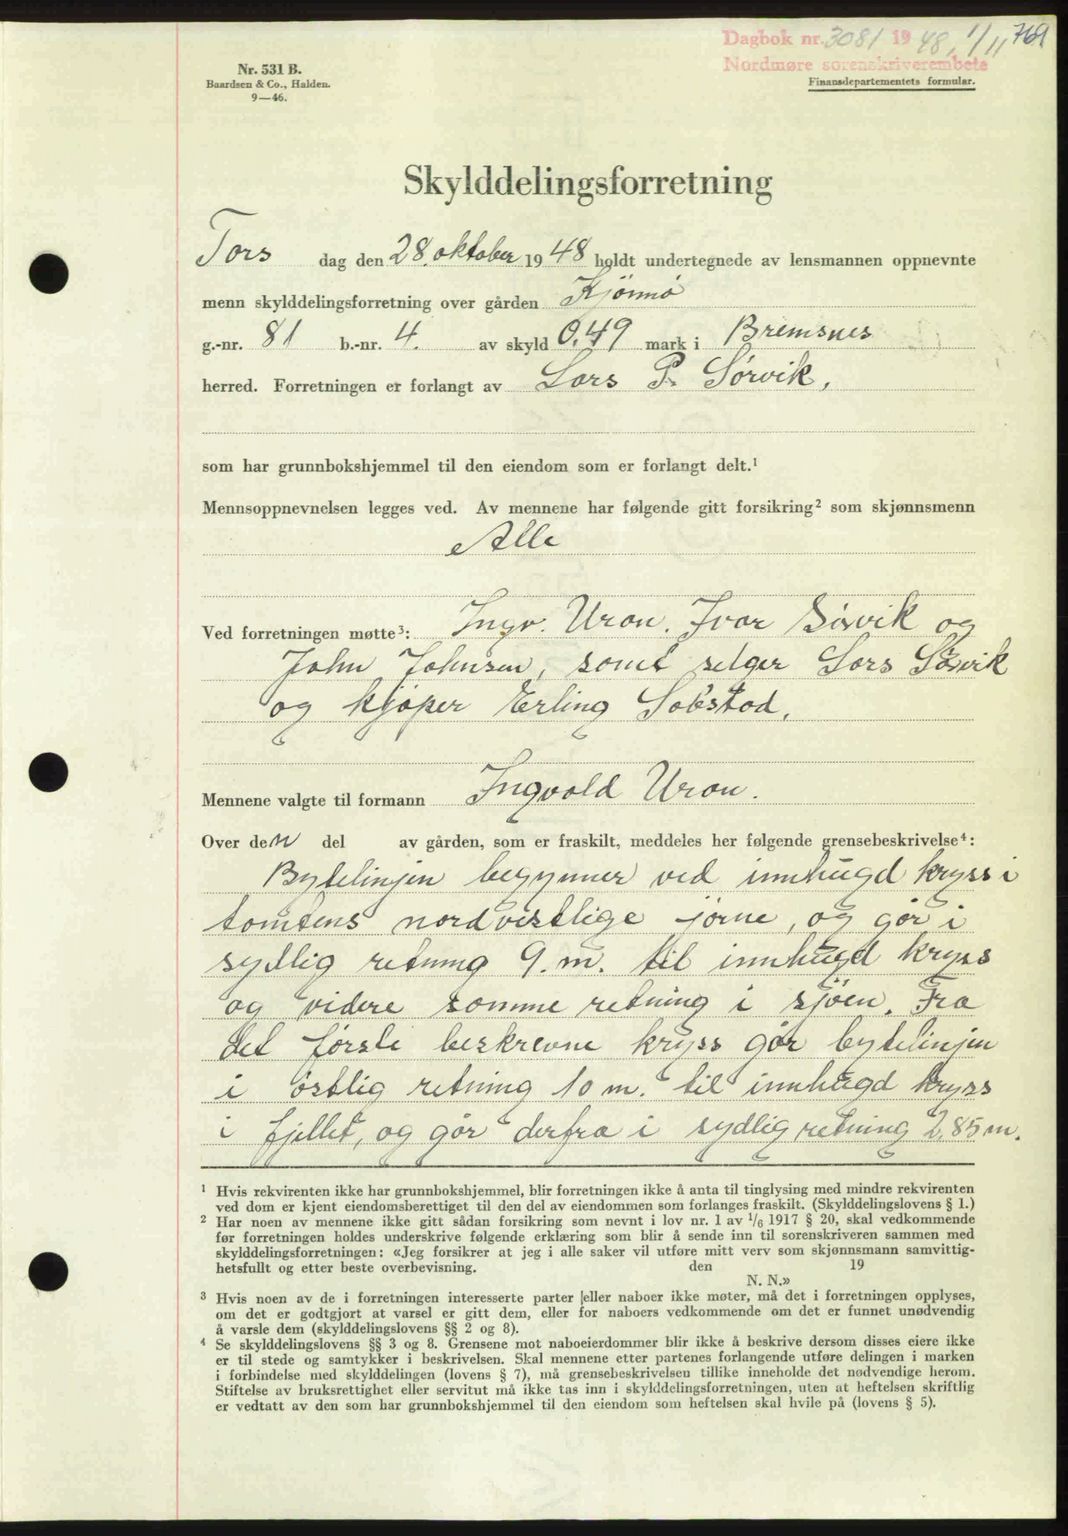 Dagbok nr. 3081 1948, 1/11 769
Nordmøre sorenskriverembete
Nr. 531 B.
Baardsen & Co., Halden.
9—46.
Finansdepartementets formular.
Skylddelingsforretning
Tors dag den 28. oktober 1948 holdt undertegnede av lensmannen oppnevnte
menn skylddelingsforretning over gården Kjönnö
g.-nr. 81 b.-nr. 4. av skyld 0.49 mark i Bremsnes
herred. Forretningen er forlangt av Lars P. Sörvik,
som har grunnbokshjemmel til den eiendom som er forlangt delt.¹
Mennsoppnevnelsen legges ved. Av mennene har følgende gitt forsikring² som skjønnsmenn
Alle
Ved forretningen møtte³: Ingv. Uran. Ivar Sörvik og
John Johnsen, samt selger Lars Sörvik
og kjöper Erling Solstad.
Mennene valgte til formann Ingvald Uran.
Over den del av gården, som er fraskilt, meddeles her følgende grensebeskrivelse⁴:
Bytelinjen begynner ved innhugd kryss i
tomtens nordvestlige jörne, og går i
sydlig retning 9. m. til innhugd kryss
og videre samme retning i sjöen. Fra
det förste beskrevne kryss går bytelinjen
i östlig retning 10 m. til innhugd kryss
i fjellet, og går derfra i sydlig retning 2,85 m.
¹ Hvis rekvirenten ikke har grunnbokshjemmel, blir forretningen ikke å anta til tinglysing med mindre rekvirenten
ved dom er kjent eiendomsberettiget til den del av eiendommen som forlanges fraskilt. (Skylddelingslovens § 1.)
² Har noen av mennene ikke gitt sådan forsikring som nevnt i lov nr. 1 av 1/6 1917 § 20, skal vedkommende
før forretningen holdes underskrive følgende erklæring som blir å sende inn til sorenskriveren sammen med
skylddelingsforretningen: «Jeg forsikrer at jeg i alle saker vil utføre mitt verv som skjønnsmann samvittig-
hetsfullt og etter beste overbevisning. den 19
N. N.»
³ Hvis noen av de i forretningen interesserte parter eller naboer ikke møter, må det i forretningen opplyses,
om det er godtgjort at varsel er gitt dem, eller for naboers vedkommende om det er funnet unødvendig
å varsle dem (skylddelingslovens §§ 2 og 8).
⁴ Se skylddelingslovens §§ 3 og 8. Grensene mot naboeierdommer blir ikke å beskrive dersom disses eiere ikke
er til stede og samtykker i beskrivelsen. Skal mennene etter partenes forlangende utføre delingen i marken
i forbindelse med skylddelingen (lovens § 7), må grensebeskrivelsen tillike inneholde det nødvendige herom.
Stiftelse av bruksrettighet eller servitut må ikke tas inn i skylddelingsforretningen, uten at heftelsen skriftlig
er vedtatt av den som har grunnbokshjemmel til den eiendom som heftelsen skal hvile på (lovens § 5).